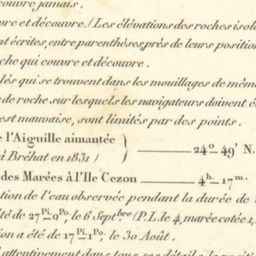 couvre jamais.
vre et découvre. / Les élévations des roches isolé
nt écrites, entre parenthèses, près de leurs position
che qui couvre et découvre.
lés qui se trouvent dans les mouillages de même
de roche sur lesquels les navigateurs doivent é
est mauvaise, sont limités par des points.
e l'Aiguille aimantée
à Bréhat en 1831 ) 24° 49' N.
des Marées à l'Ile Cezon 4h 17m.
tion de l'eau observée pendant la durée de
été de 27Pi 0Po, le 6 Septbre (P. L. le 4, marée cotée 1,
ion a été de 17Pi 1Po, le 30 Août.